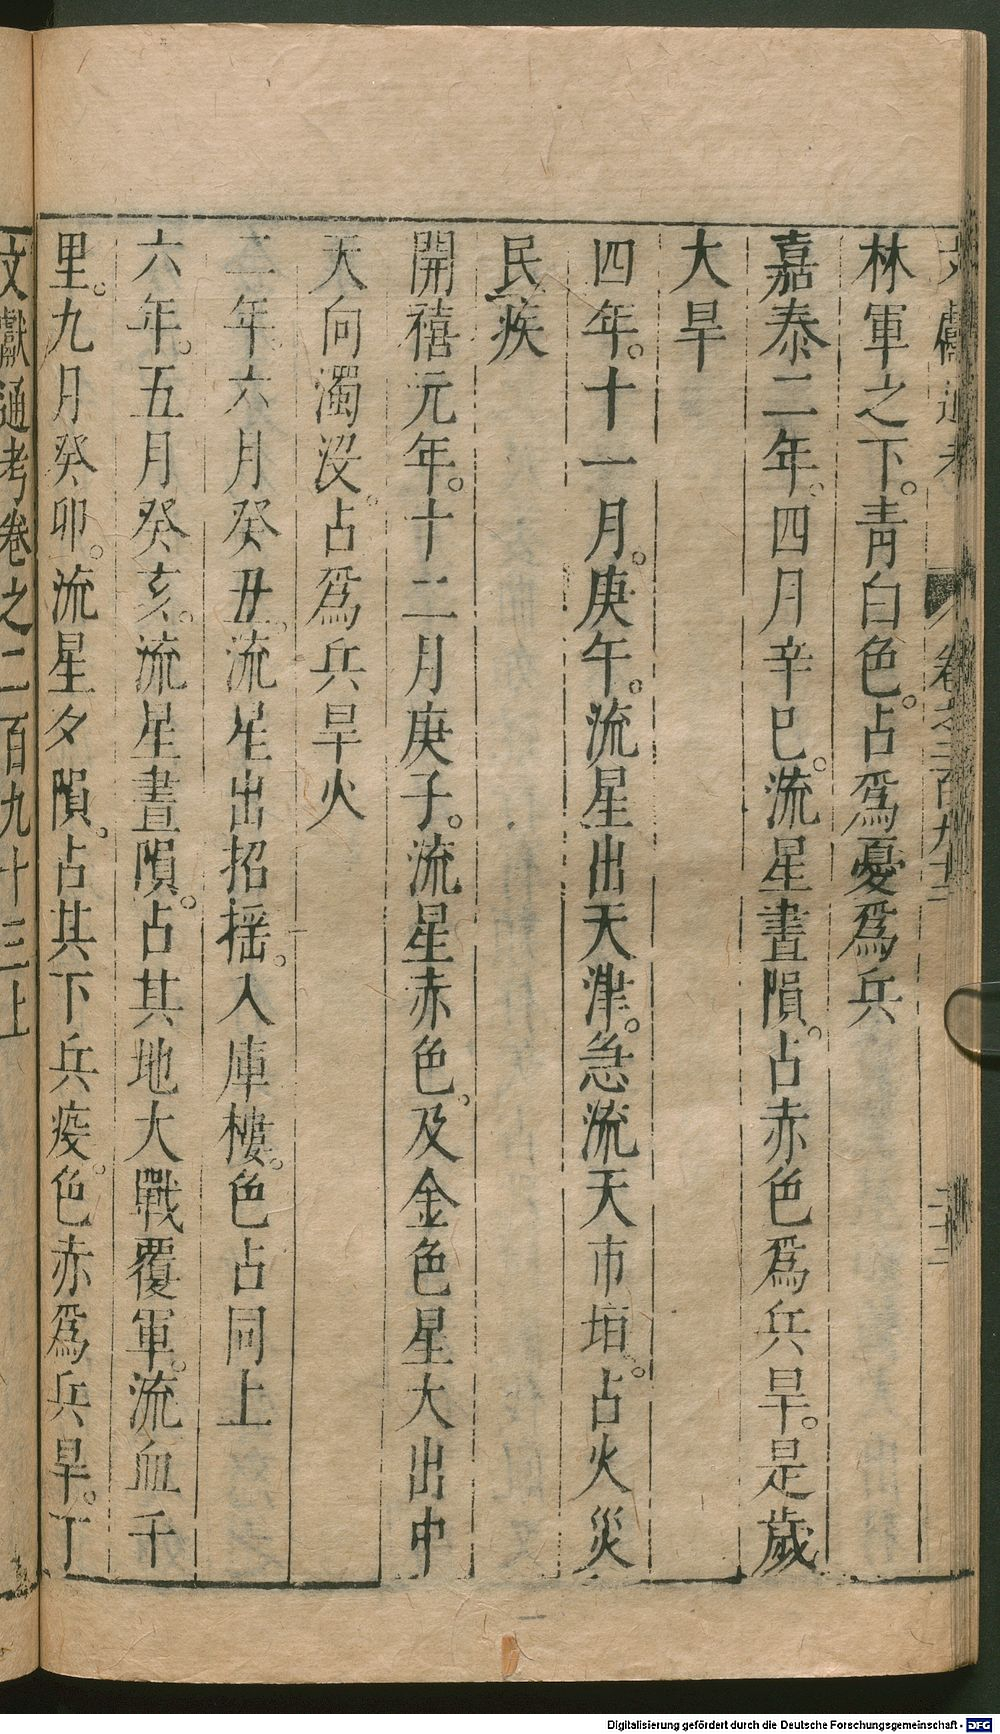 林軍之下。青白色。占爲憂爲兵
嘉泰二年。四月辛巳。流星晝隕。占赤色爲兵旱。是歲
大旱
四年。十一月。庚午。流星出天津。急流天市垣。占火災
民疾
開禧元年。十二月庚子。流星赤色。及金色星大出中
天向濁没。占爲兵旱火
二年。六月癸丑。流星出招揺。入庫樓。色占同上
六年。五月癸亥。流星晝隕。占其地大戰覆軍。流血千
里。九月癸卯。流星夕隕。占其下兵疫。色赤爲兵旱。丁
文獻通考卷之二百九十三上
Digitalisierung gefördert durch die Deutsche Forschungsgemeinschaft - DFG